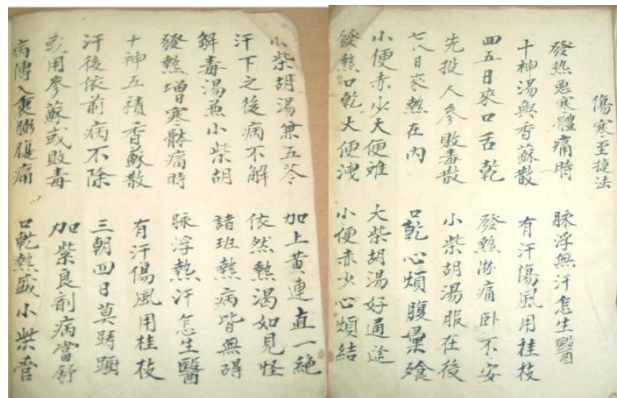 傷寒至捷法
發热惡寒體痛時 脉浮無汗怎生醫
十神湯與香蘇散 有汗傷風用桂枝
四五日來口舌乾 發熱痛卧不安
先投人參敗毒散 小柴胡湯服在後
七八日來熱在內 口乾心煩腹
小便赤少大便难 大柴胡湯好通途
發熱口乾大便洩 小便赤少心煩結
小柴胡湯兼五苓 加上黄連直一絕
汗下之後病不解 依然熱渴如見怪
解毒湯兼小柴胡 諸班熱病皆無碍
發熱增寒體痛時 脉浮熱汗怎生醫
十神五積香蘇散 有汗傷風用桂枝
汗後依前病不除 三朝四日莫踌
或用參蘇或敗毒 加柴良劑病當舒
病傳入裏膨腹痛 口乾熱盛小柴管